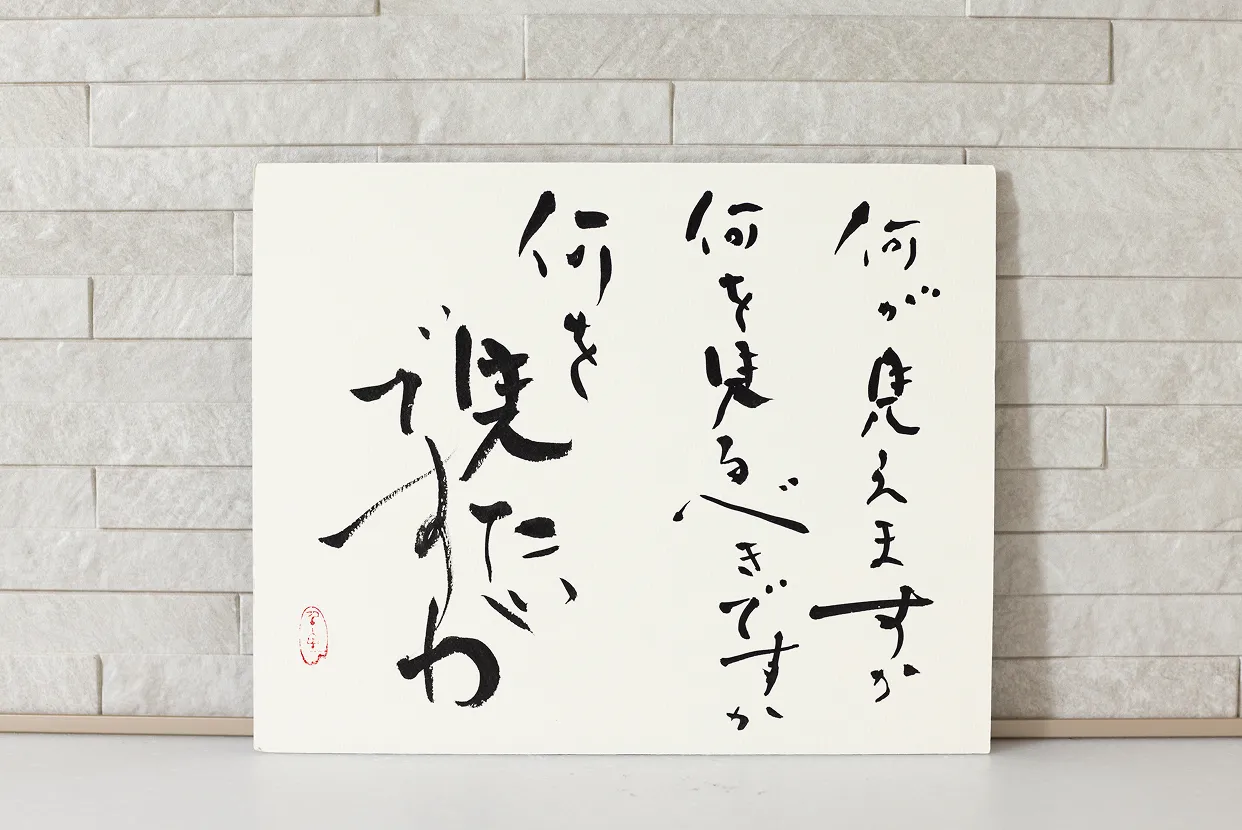 何が見えますか
何を見るべきですか
何を見たいですか